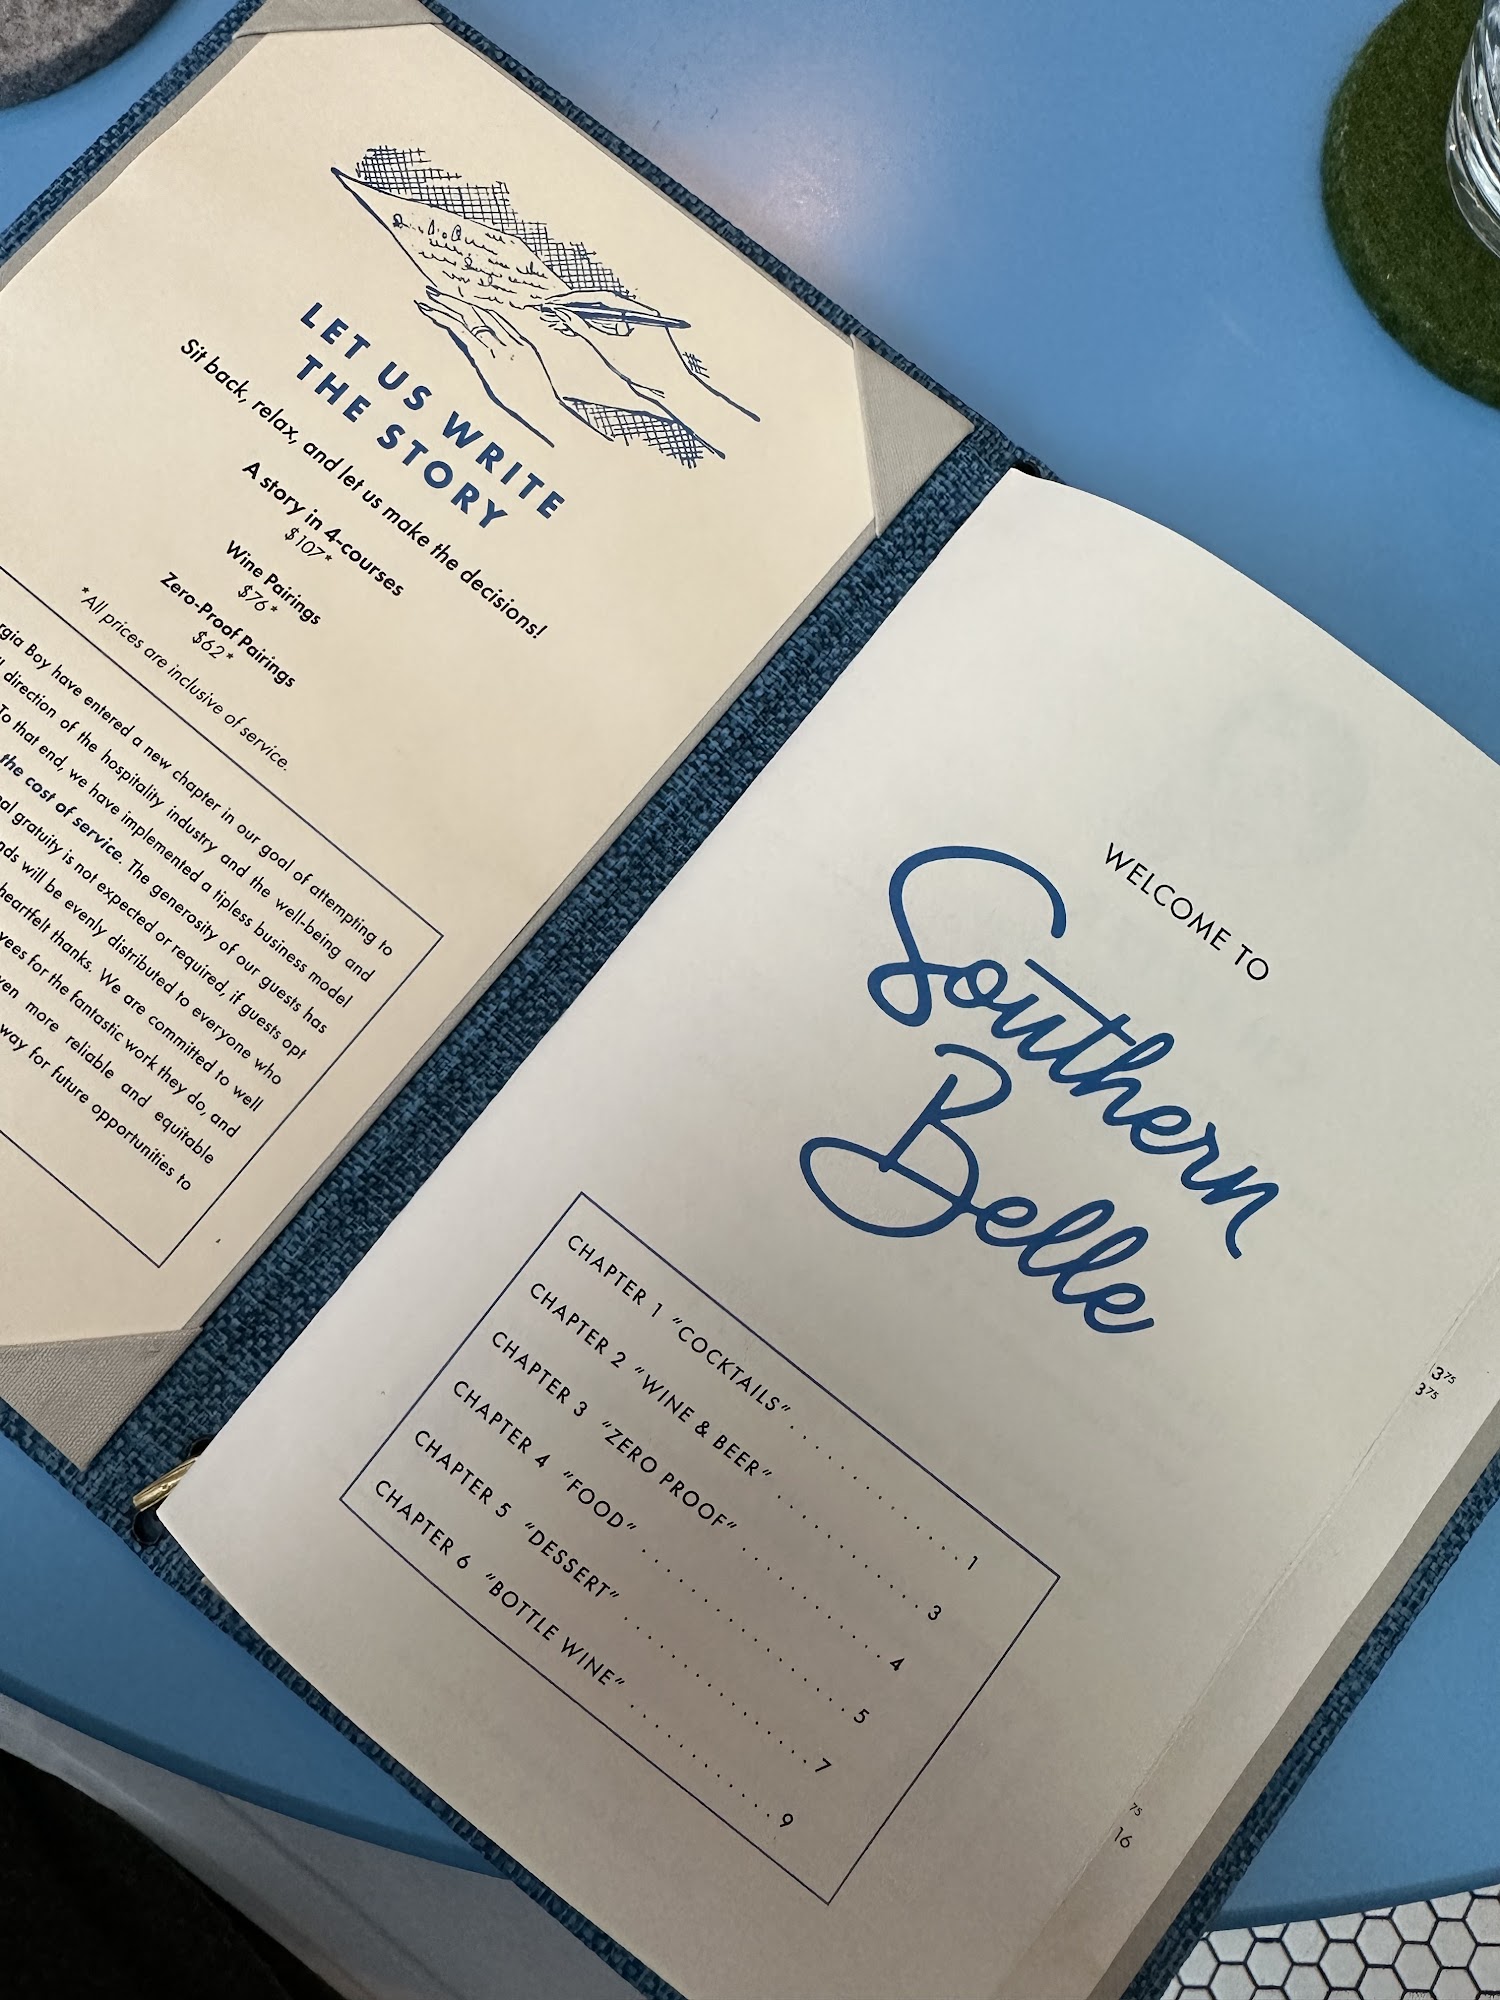 LET US WRITE
THE STORY
Sit back, relax, and let us make the decisions!
A story in 4-courses
$107*
Wine Pairings
$76*
Zero-Proof Pairings
$62*
*All prices are inclusive of service.
Boy have entered a new chapter in our goal of attempting to
direction of the hospitality industry and the well-being and
To that end, we have implemented a tipless business model
the cost of service. The generosity of our guests has
gratuity is not expected or required, if guests opt
will be evenly distributed to everyone who
heartfelt thanks. We are committed to well
for the fantastic work they do, and
more reliable and equitable
way for future opportunities to
WELCOME TO
Southern
Belle
CHAPTER 1 "COCKTAILS" . . . . . . . . . . . . . . . 1
CHAPTER 2 "WINE & BEER" . . . . . . . . . . . . . 3
CHAPTER 3 "ZERO PROOF" . . . . . . . . . . . . . 4
CHAPTER 4 "FOOD" . . . . . . . . . . . . . . . . . . 5
CHAPTER 5 "DESSERT" . . . . . . . . . . . . . . . . 7
CHAPTER 6 "BOTTLE WINE" . . . . . . . . . . . . . 9
375
375
75
16